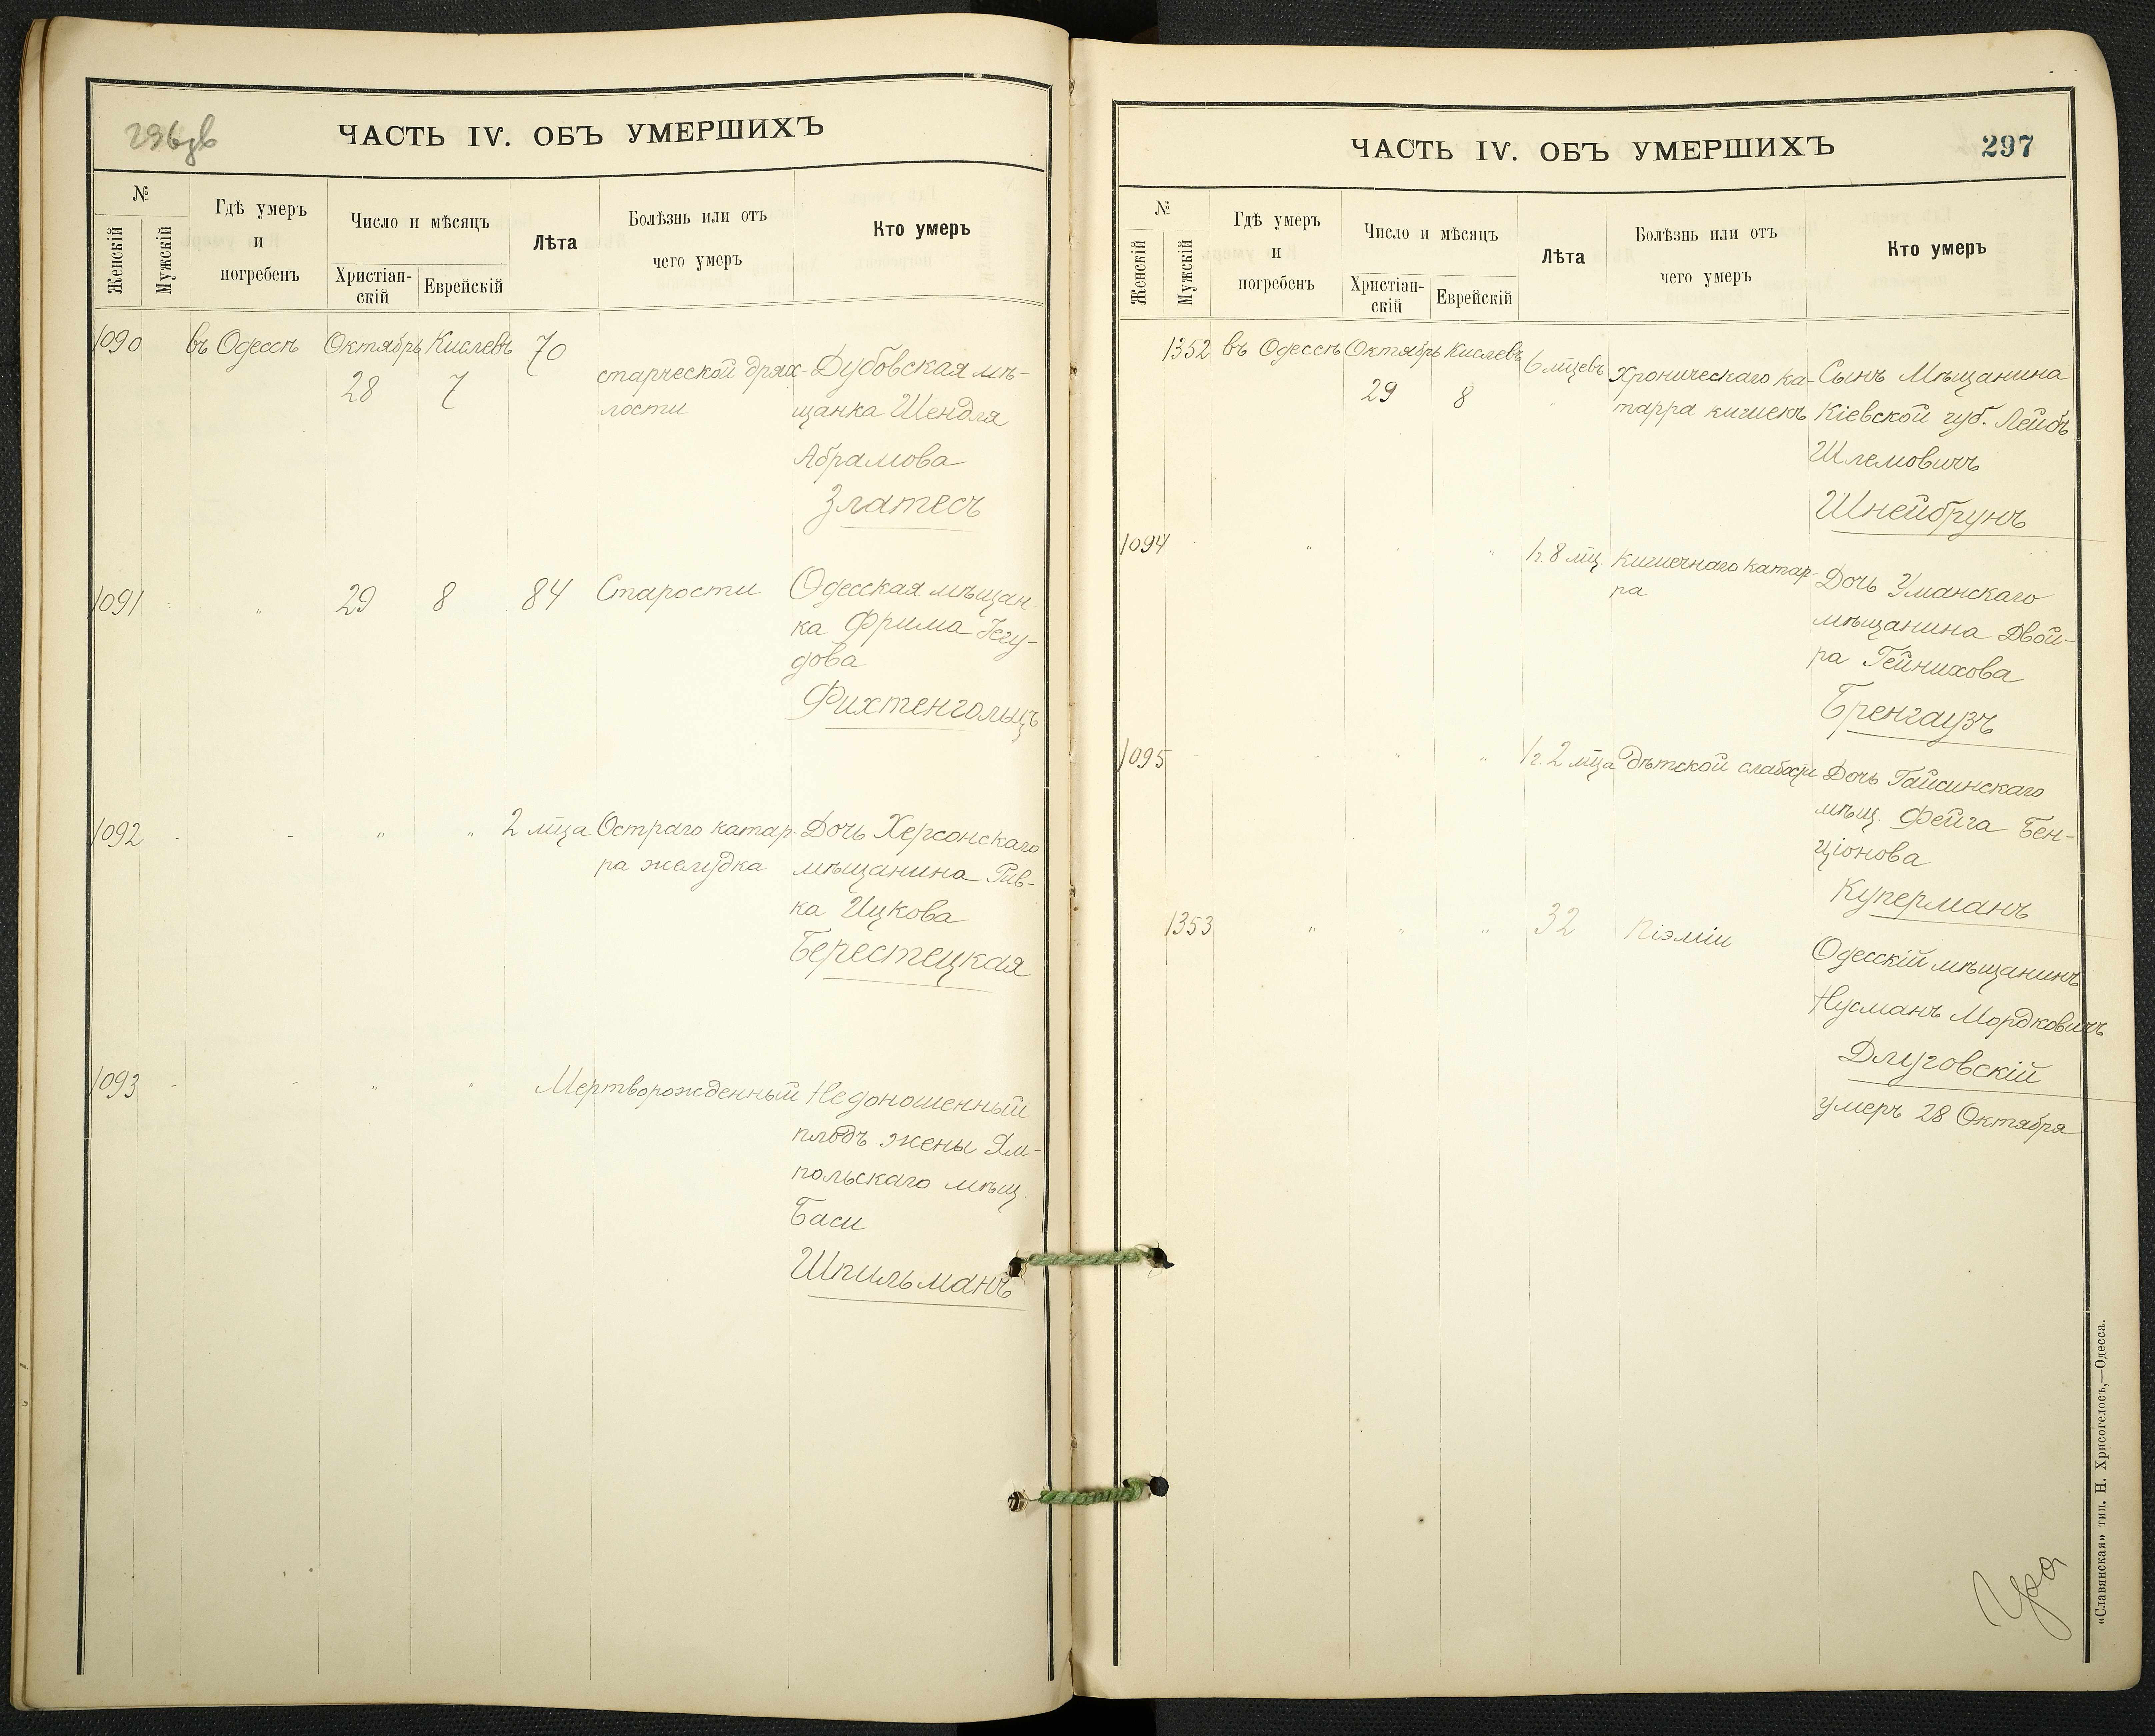 296 об
ЧАСТЬ IV. ОБЪ УМЕРШИХЪ
№
Женскій
Мужскій
Гдѣ умеръ
и
погребенъ
Число и мѣсяцъ
Христіан-
скій
Еврейскій
Лѣта
Болѣзнь или отъ
чего умеръ
Кто умеръ
1090 въ Одессѣ Октябрь Кислевъ 70
28 7
старческой дрях-
лости
Дубовская мѣ-
щанка Шендля
Абрамова
Златесъ
1091 " 29 8 84 Старости
Одесская мѣщан
ка Фрима Іегу-
дова
Фихтенгольцъ
1092 - - " " 2 мца Остраго катар-
ра желудка
Дочь Херсонскаго
мѣщанина Рив-
ка Ицкова
Берестецкая
1093 - - " " Мертворожденный
Недоношенный
плодъ жены Ям-
польскаго мѣщ.
Баси
Шпильманъ
ЧАСТЬ IV. ОБЪ УМЕРШИХЪ
297
№
Женскій
Мужскій
Гдѣ умеръ
и
погребенъ
Число и мѣсяцъ
Христіан-
скій
Еврейскій
Лѣта
Болѣзнь или отъ
чего умеръ
Кто умеръ
1352 въ Одессѣ Октябрь Кислевъ 6 мцевъ
29 8
Хроническаго ка-
тарра кишекъ
Сынъ Мѣщанина
Кіевской губ. Лейбъ
Шлемовичъ
Шнейбрунъ
1094 - " " " 1 г. 8 мц. Кишечнаго катар-
ра
Дочь Уманскаго
мѣщанина Двой-
ра Гейнихова
Бренгаузъ
1095 - - " " 1 г. 2 мца дѣтской слабости
Дочь Гайсинскаго
мѣщ. Фейга Бен-
ціонова
Куперманъ
1353 " " " 32 Піэміи
Одесскій мѣщанинъ
Нусманъ Мордковичъ
Длуговскій
умеръ 28 Октября
«Славянская» тип. Н. Хрисогелосъ,—Одесса.